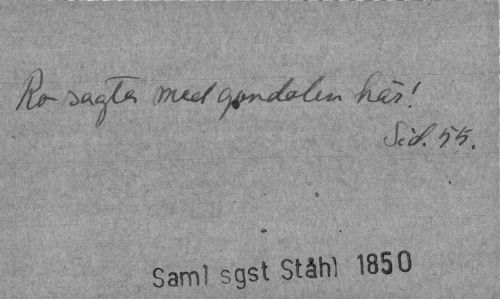 Ro sagta med gondolen här!
Sid. 55.
Saml sgst Ståhl 1850